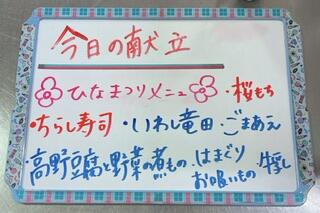 今日の献立
ひなまつりメニュー ・桜もち
・ちらし寿司 ・いわし竜田 ・ごまあえ
・高野豆腐と野菜の煮もの ・はまぐり
お吸いもの